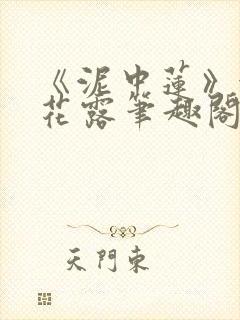 《泥中蓮》
花露筆趣閣
天門東